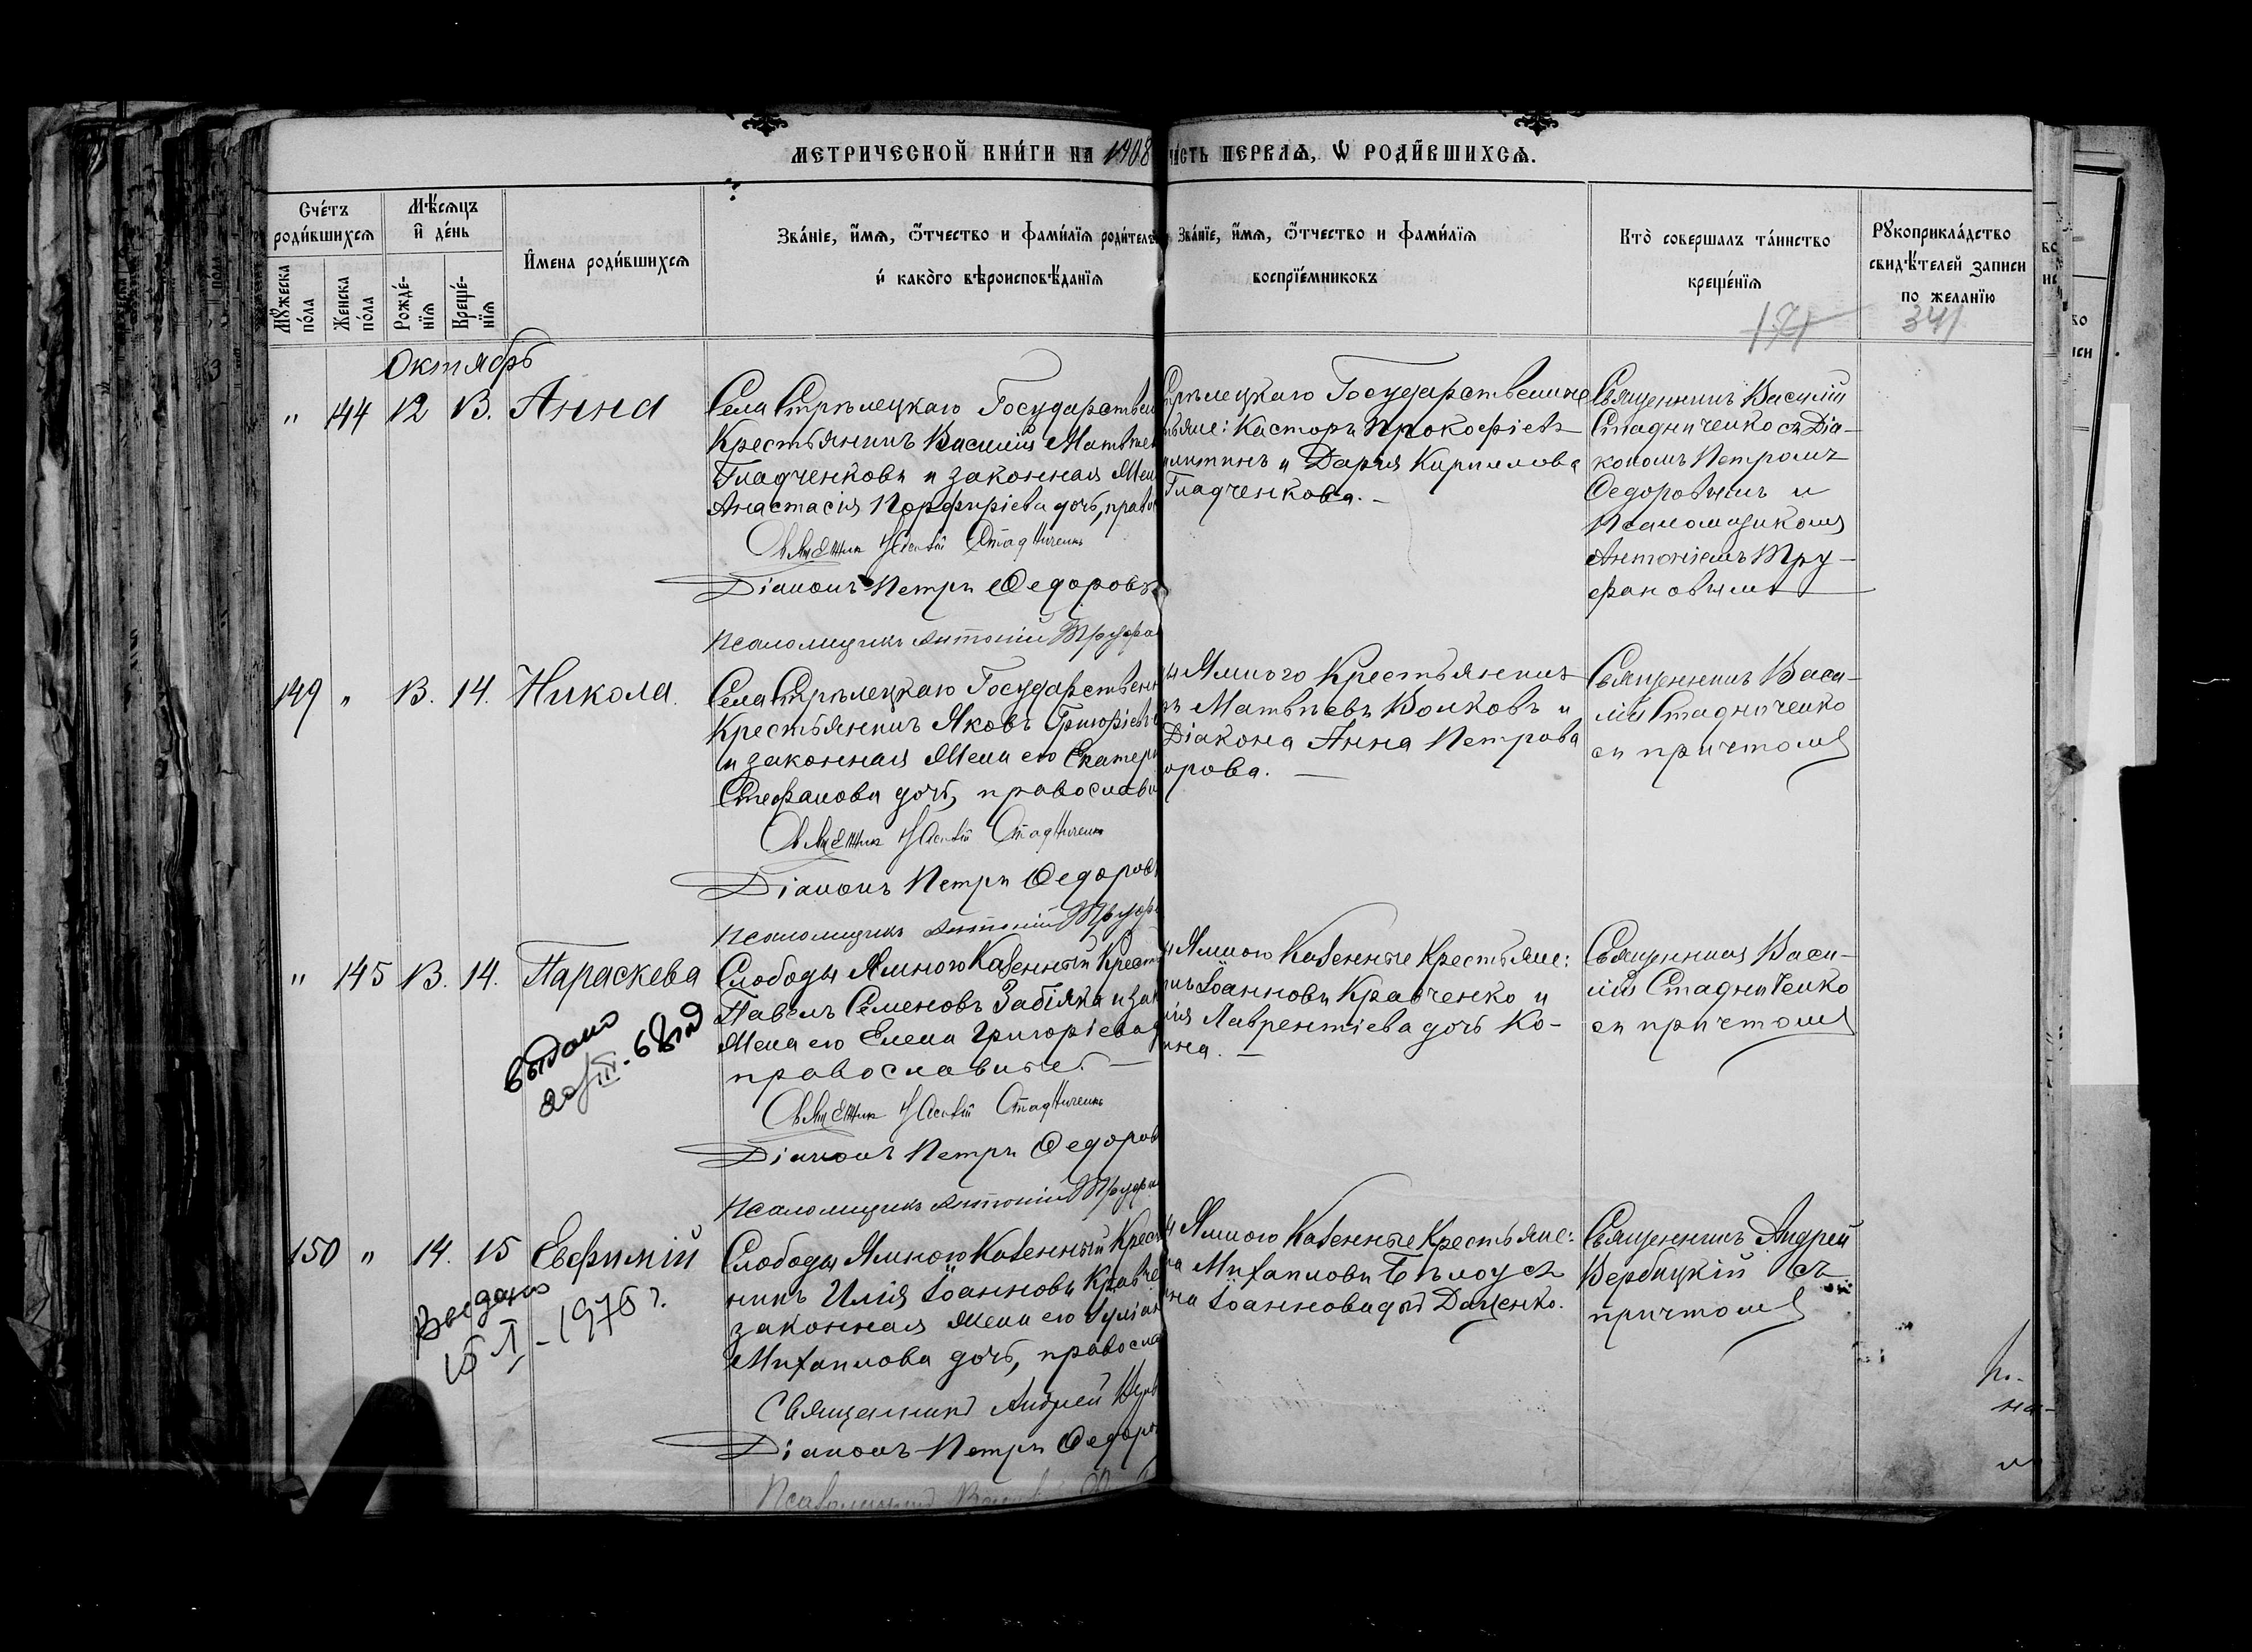 МЕТРИЧЕСКОЙ КНИ́ГИ НА 1908
ЧА́СТЬ ПЕРВАѦ, Ѡ РОДИ́ВШИХСѦ.
Сче́тъ роди́вшихсѧ
Мѣ́сѧцъ и҆ де́нь
И҆мена роди́вшихсѧ
Зва́нїе, и҆́мѧ, ѻ҆́тчество и фами́лїѧ роди́тел
и҆ како́гѡ вѣроисповѣ́данїѧ
Зва́нїе, и҆́мѧ, ѻ҆́тчество и фами́лїѧ
воспрїе́мниковъ
Кто̀ соверша́лъ та́инство
креще́нїѧ
Рꙋкоприкла́дство
свидѣ́телей записи
по желанїю
Мꙋжеска по́ла
Женска по́ла
Рожде́нїѧ
Креще́нїѧ
171
341
Октябрь
" 144 12 13. Анна
Села Стрѣлецкаго Государствен
Крестьянинъ Василій Матвѣе
Гладченковъ и законная Же
Анастасія Порфиріева дочь, право
Священникъ Василій Стадниченко
Діаконъ Петръ Ѳедоровъ
Псаломщикъ Антоній Труфа
Стрѣлецкаго Государственные
тьяне: Касторъ Прокофіевъ
и Дарія Кириллова
Гладченкова. —
Священникъ Василій
Стадниченко съ Діа-
кономъ Петромъ
Ѳедоровымъ и
Псаломщикомъ
Антоніемъ Тру-
фановымъ
149 " 13. 14. Никола.
Села Стрѣлецкаго Государственн
Крестьянинъ Яковъ Григоріевъ
и законная Жена его Екатери
Стефанова дочь, православн
Священникъ Василій Стадниченко
Діаконъ Петръ Ѳедоров
Псаломщикъ Антоній Труфа
Ямного Крестьянинъ
Матвѣевъ Волковъ и
Діакона Анна Петрова
орова. —
Священникъ Васи-
лій Стадниченко
съ причтомъ
" 145 13. 14. Параскева
выдано
20/III-68 год
Слободы Ямного Казенный Крест
Павелъ Семеновъ Забіяка и зак
Жена его Елена Григоріева д
православные. —
Священникъ Василій Стадниченко
Діаконъ Петръ Ѳедоров
Псаломщикъ Антоній Труфа
Ямного Казенные Крестьяне:
Іоанновъ Кравченко и
Лаврентіева дочь Ко-
ина. —
Священникъ Васи-
лій Стадниченко
съ причтомъ
150 " 14. 15 Евфимій
Выдано
15 I - 1976 г.
Слободы Ямного Казенный Крес
никъ Илія Іоанновъ Кравче
законная жена его Іуліан
Михаилова дочь, правосла
Священникъ Андрей Верб
Діаконъ Петръ Ѳедоро
Псаломщикъ
Ямного Казенные Крестьяне:
Михаиловъ Бѣлоусъ
Іоаннова дочь Даценко.
Священникъ Андрей
Вербицкій съ
причтомъ